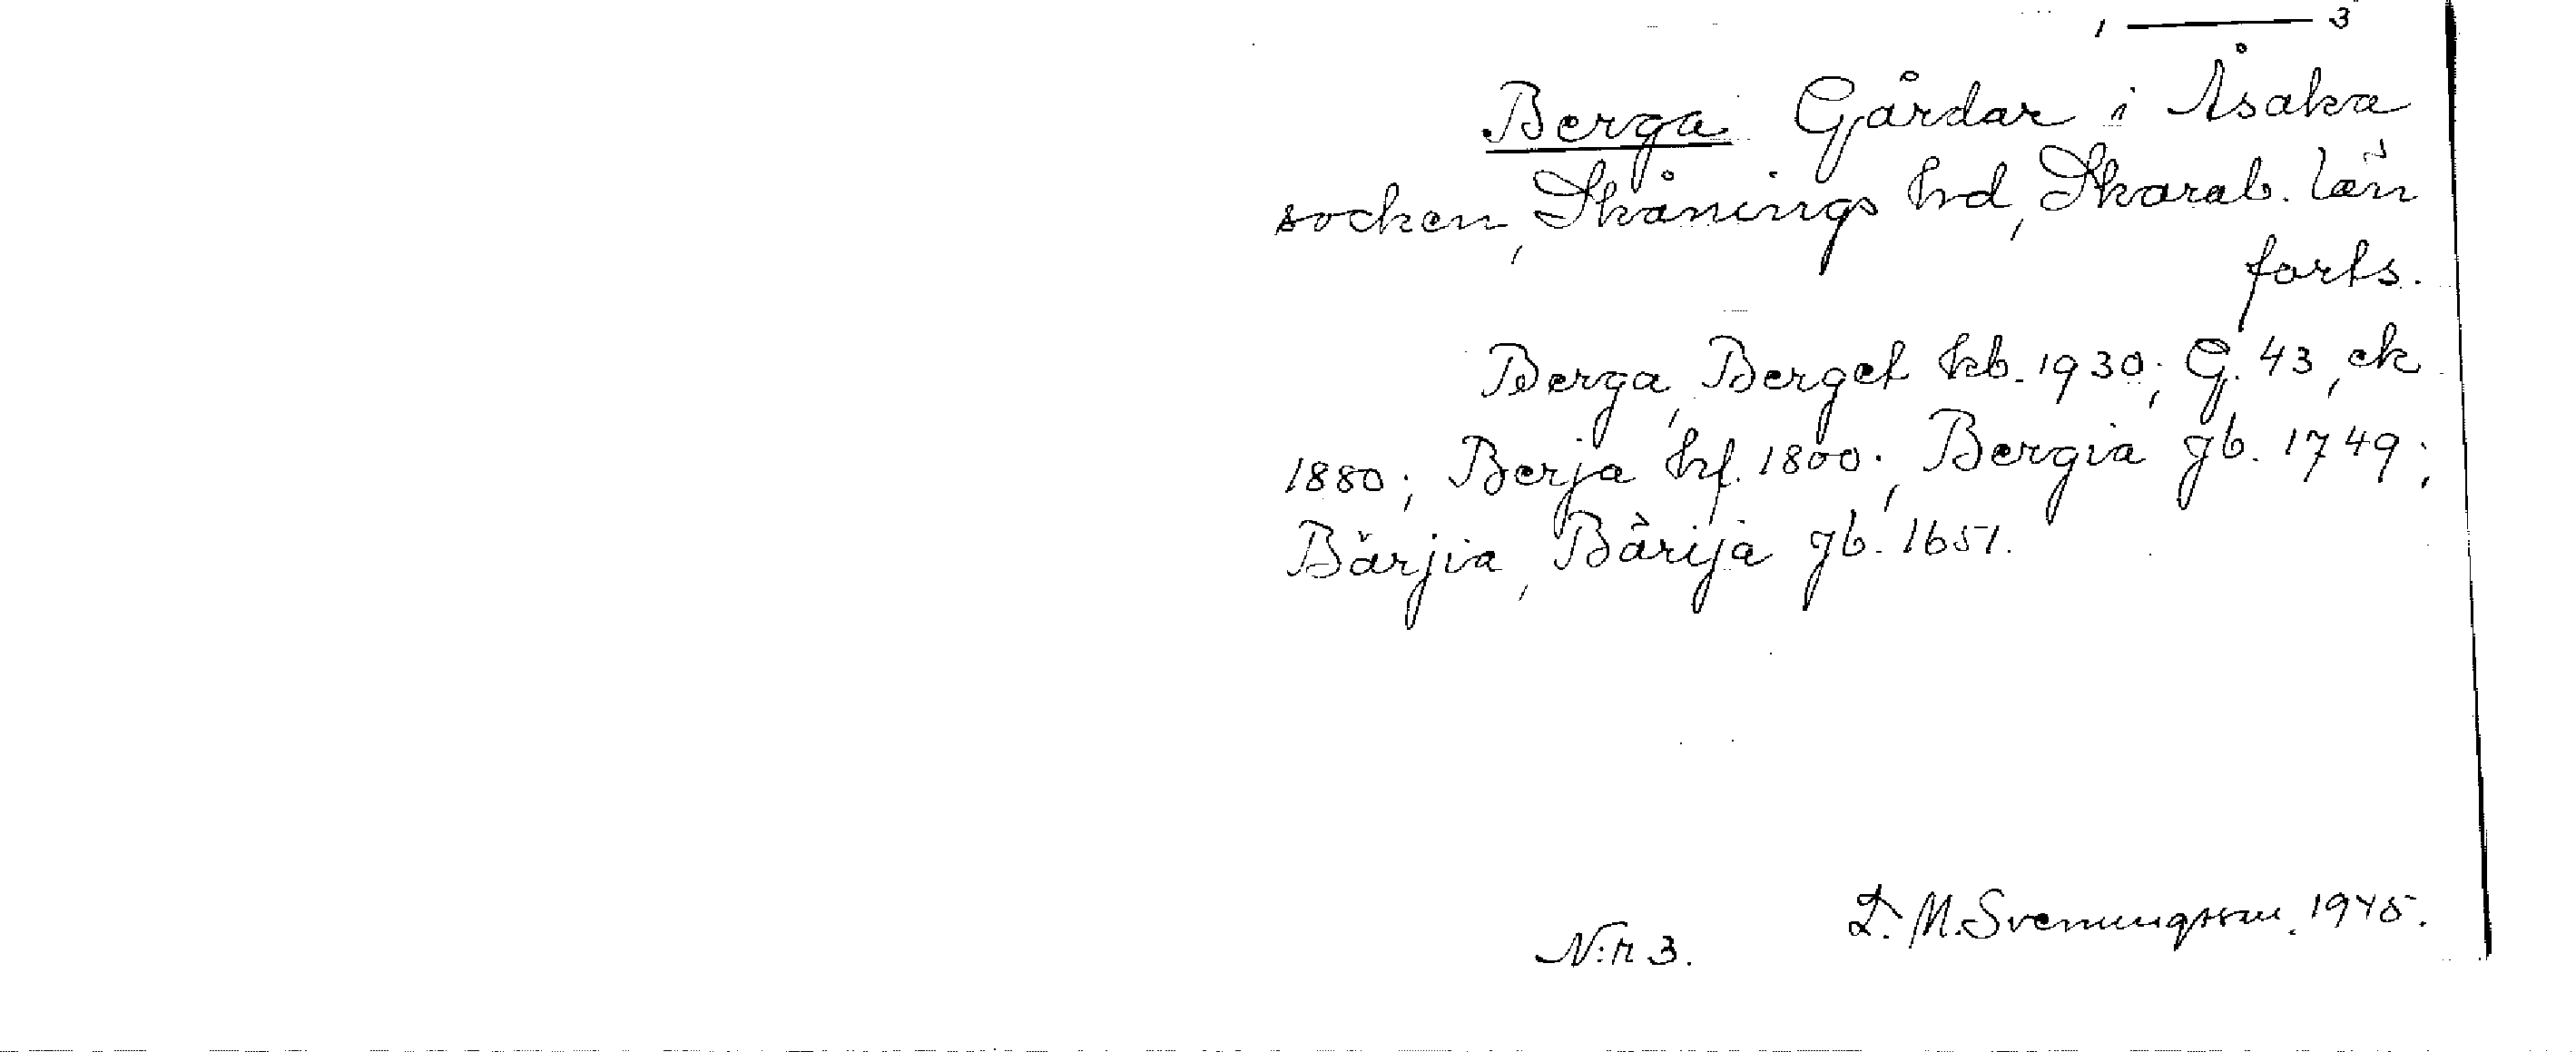 1 — 3
Berga Gårdar i Åsaka
socken, Skånings hd, Skarab. län
forts.
Berga, Berget kb. 1930; G. 43, ek
1880; Berja hf. 1800; Bergia jb. 1749;
Bärjia, Bärija jb. 1651.
N:r 3. D. M. Svenungsson. 1945.